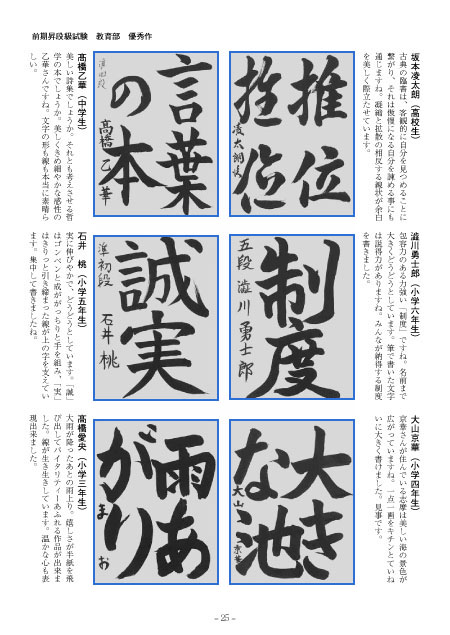 前期昇段級試験　教育部　優秀作
坂本凌太朗（高校生）
古典の臨書は、客観的に自分を見つめることに
繋がり、それは傲慢になる自分を諫める事にも
通じますね。凝縮と拡散の相反する線状が余白
を美しく際立たせています。
推位
凌太朗臨
言葉
の本
準四段
高橋乙華
髙橋乙華（中学生）
美しい詩集でしょうか。それとも考えさせる哲
学の本でしょうか。美しくきめ細やかな感性の
乙華さんですね。文字の形も線も本当に素晴ら
しい。
澁川勇士郎（小学六年生）
包容力のある力強い「制度」ですね。名前まで
大きくどうどうとしています。筆で書いた文字
は説得力がありますね。みんなが納得する制度
を書きました。
制度
五段 澁川勇士郎
誠実
準初段 石井桃
石井　桃（小学五年生）
実に伸びやかで、どうどうとしています。「誠」
はゴンベンと成ががっちりと手を組み、「実」
はきりっと引き締まった線が上の字を支えてい
ます。集中して書きましたね。
大山京華（小学四年生）
京華さんが住んでいる志摩は美しい海の景色が
広がっていますね。一点一画をキチンとていね
いに大きく書けました。見事です。
大き
な池
大山京華
雨あ
がり
まお
髙橋愛央（小学三年生）
大雨が降ったあとの雨上り。嬉しさが半紙を飛
び出してバイタリティーあふれる作品が出来ま
した。線が生き生きしています。温かな心も表
現出来ました。
- 25 -